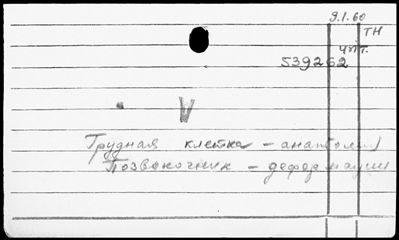 9.1.60
ТН
Чит.
539262
V
Грудная клетка – анатомия
Позвоночник – деформации